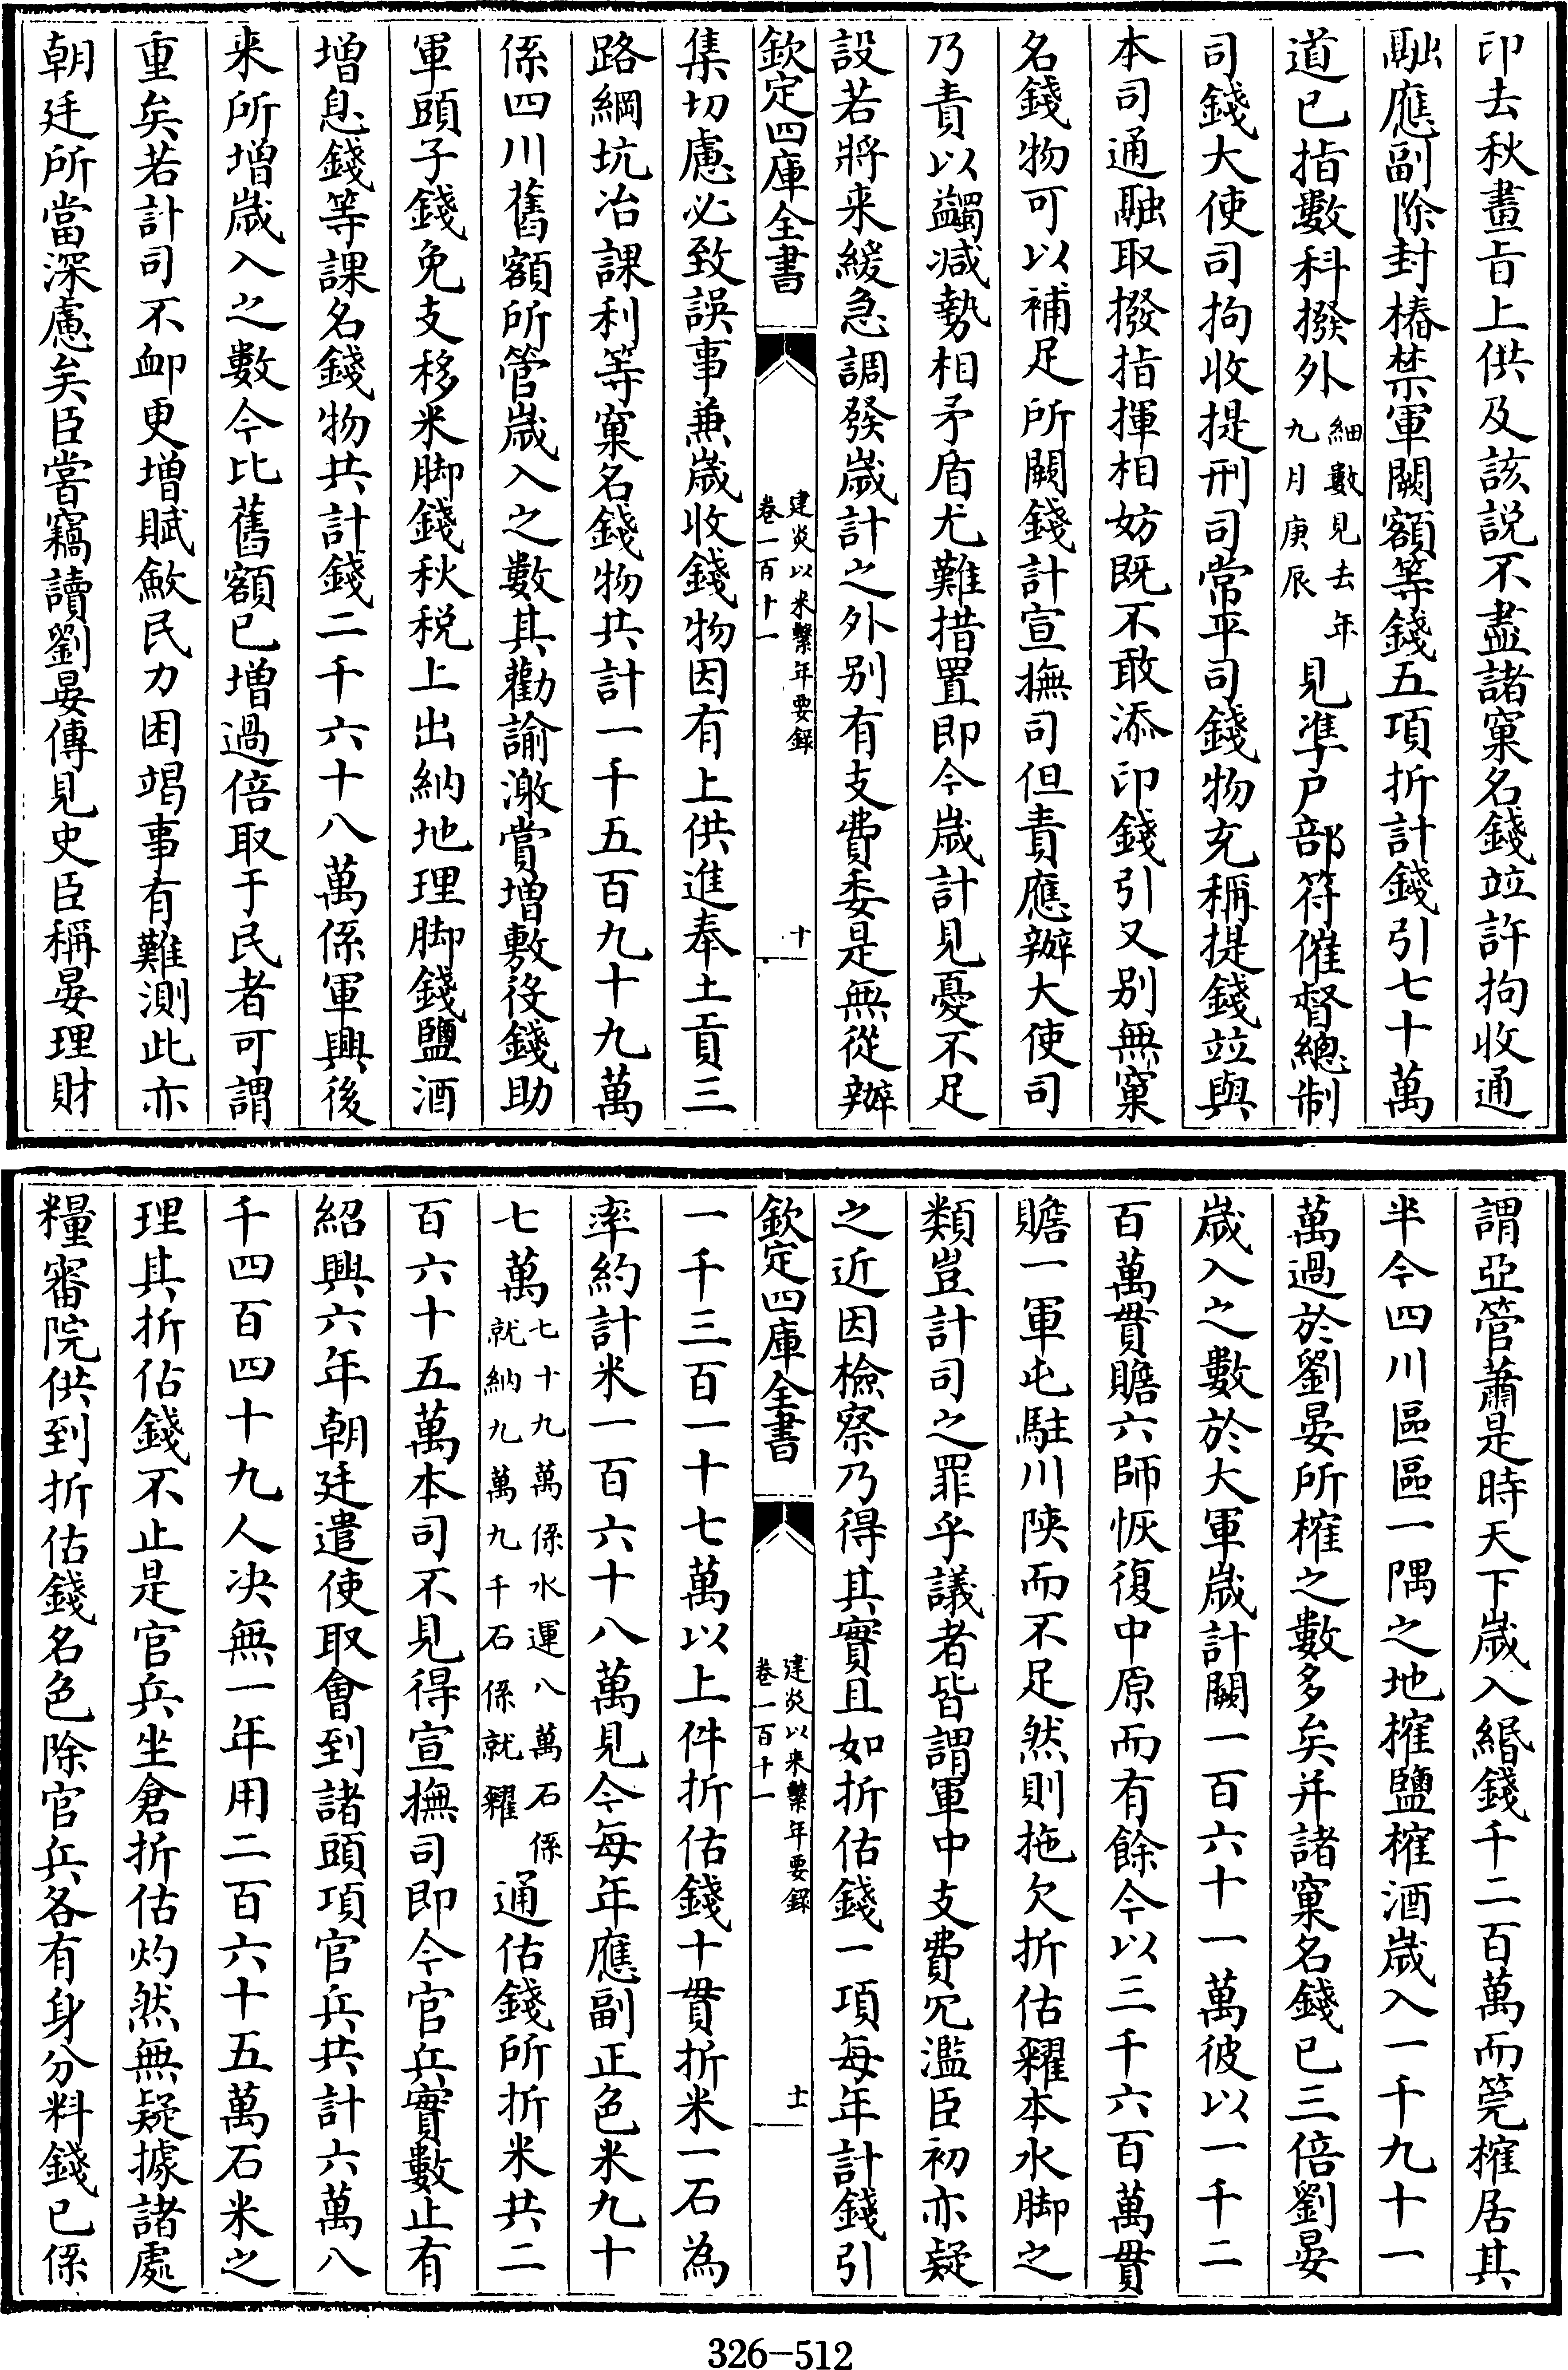 印去秋畫㫖上供及該説不盡諸窠名錢竝許拘收通
融應副除封樁禁軍闕額等錢五項折計錢引七十萬
道已指數科撥外細數見去年九月庚辰見準户部符催督總制
司錢大使司拘收提刑司常平司錢物充稱提錢竝與
本司通融取撥指揮相妨既不敢添印錢引又别無窠
名錢物可以補足所闕錢計宣撫司但責應辦大使司
乃責以蠲減勢相矛盾尤難措置即今歲計見憂不足
設若將来緩急調發歲計之外别有支費委是無從辦
欽定四庫全書
建炎以来繫年要録
卷一百十一
十
集切慮必致誤事兼歲收錢物因有上供進奉土貢三
路綱坑冶課利等窠名錢物共計一千五百九十九萬
係四川舊額所管歲入之數其勸諭激賞增敷役錢助
軍頭子錢免支移米脚錢秋税上出納地理脚錢鹽酒
增息錢等課名錢物共計錢二千六十八萬係軍興後
来所增歲入之數今比舊額已增過倍取于民者可謂
重矣若計司不卹更增賦斂民力困竭事有難測此亦
朝廷所當深慮矣臣嘗竊讀劉晏傳見史臣稱晏理財
謂亞管蕭是時天下歲入緡錢千二百萬而筦榷居其
半今四川區區一隅之地榷鹽榷酒歲入一千九十一
萬過於劉晏所榷之數多矣并諸窠名錢已三倍劉晏
歲入之數於大軍歲計闕一百六十一萬彼以一千二
百萬貫贍六師恢復中原而有餘今以三千六百萬貫
贍一軍屯駐川陜而不足然則拖欠折估糴本水脚之
類豈計司之罪乎議者皆謂軍中支費冗濫臣初亦疑
之近因檢察乃得其實且如折估錢一項每年計錢引
欽定四庫全書
建炎以来繫年要録
卷一百十一
十一
一千三百一十七萬以上件折估錢十貫折米一石為
率約計米一百六十八萬見今每年應副正色米九十
七萬七十九萬係水運八萬石係就納九萬九千石係就糴通估錢所折米共二
百六十五萬本司不見得宣撫司即今官兵實數止有
紹興六年朝廷遣使取會到諸頭項官兵共計六萬八
千四百四十九人決無一年用二百六十五萬石米之
理其折估錢不止是官兵坐倉折估灼然無疑據諸處
糧審院供到折估錢名色除官兵各有身分料錢已係
326-512